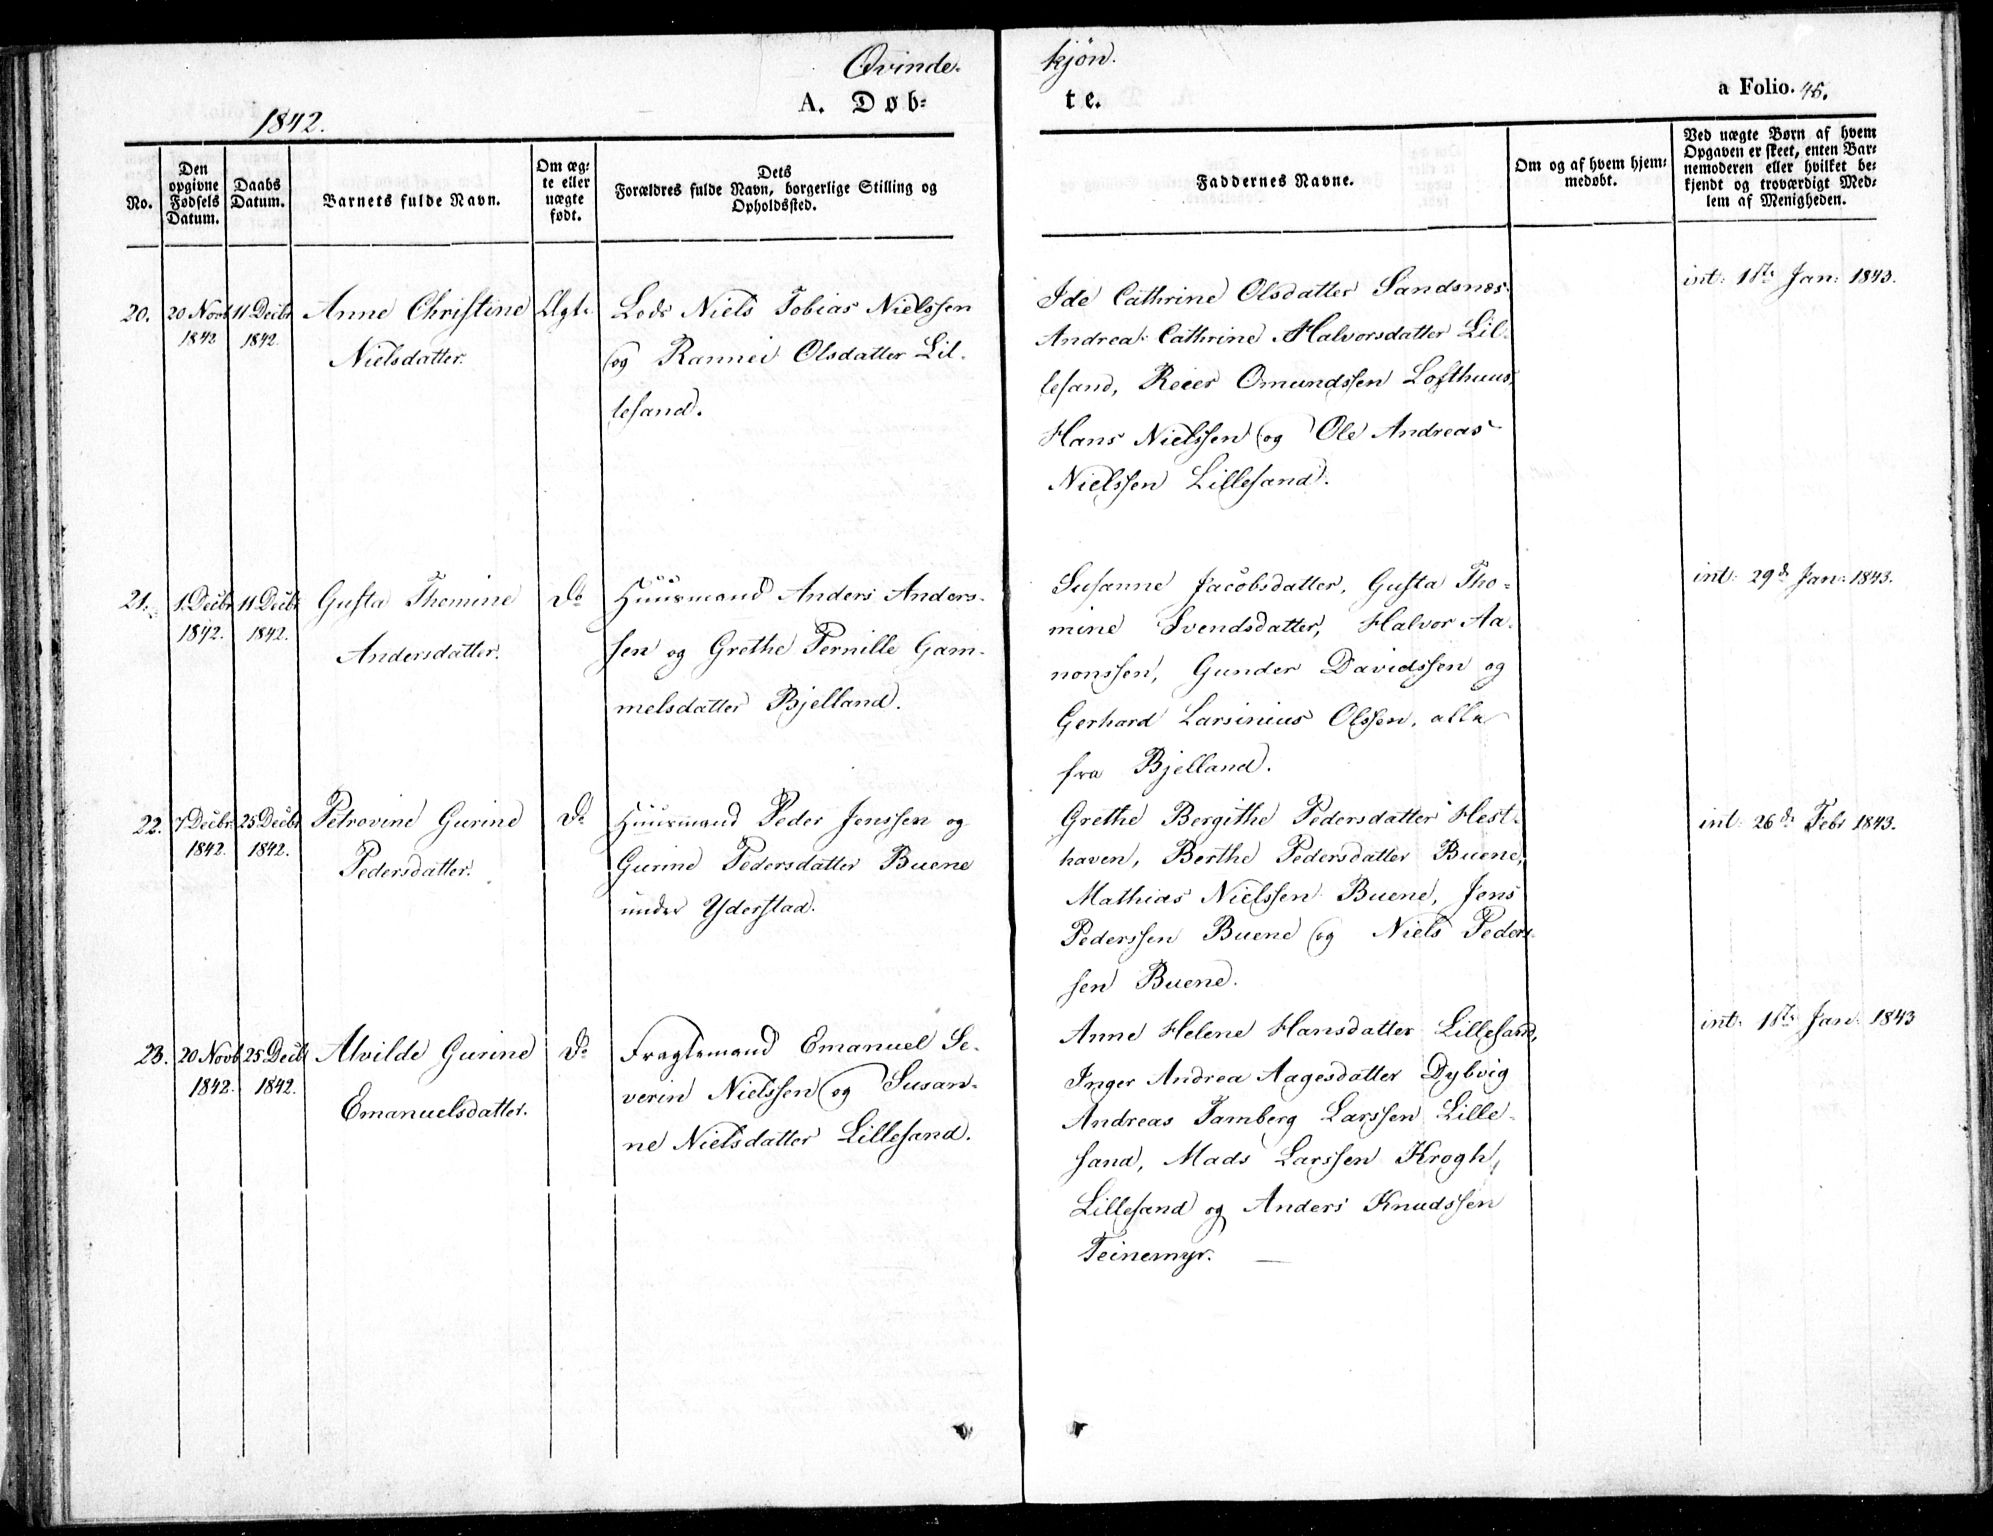 Qvinde-
kjøn.
1842.
A. Døb-
te.
a Folio. 46.
No.
Den opgivne Fødsels Datum.
Daabs Datum.
Barnets fulde Navn.
Om ægte eller uægte født.
Dets Forældres fulde Navn, borgerlige Stilling og Opholdssted.
Faddernes Navne.
Om og af hvem hjemmedøbt.
Ved uægte Børn af hvem
Opgaven er skeet, enten Bar-
nemoderen eller hvilket be-
kjendt og troværdigt Med-
lem af Menigheden.
20. 20 Novb 11 Decbr Anne Christine Ægte. Lods Niels Tobias Nielssen
1842 1842. Nielsdatter. og Rannei Olsdatter Lil-
lesand.
Ide Cathrine Olsdatter Sandsnes
Andrea Cathrine Halvorsdatter Lil-
lesand, Reier Omundssen Lofthuus,
Hans Nielssen og Ole Andreas
Nielssen Lillesand.
int: 1ste Jan: 1843.
21. 1. Decbr 11 Decbr Gusta Thomine Do Huusmand Anders Anders-
1842. 1842. Andersdatter. sen og Grethe Pernille Gam-
melsdatter Bjelland.
Susanne Jacobsdatter, Gusta Tho-
mine Svendsdatter, Halvor Aa-
nonssen, Gunder Davidssen og
Gerhard Larsinius Olssen, alle
fra Bjelland.
int: 29de Jan: 1843.
22. 7 Decbr. 25 Decbr Petrovine Gurine Do Huusmand Peder Jenssen og
1842. 1842. Pedersdatter. Gurine Pedersdatter Buene
under Yderstad.
Grethe Bergithe Pedersdatter Hest-
haven, Berthe Pedersdatter Buene,
Mathias Nielssen Buene, Jens
Pederssen Buene og Niels Peder-
sen Buene.
int: 26de Febr 1843.
23. 20 Novb 25 Decb Alvilde Gurine Do Fragtemand Emanuel Se-
1842. 1842. Emanuelsdatter. verin Nielssen og Susan-
ne Nielsdatter Lillesand.
Anne Helene Hansdatter Lillesand,
Inger Andrea Aagesdatter Dybvig
Andreas Tamberg Larssen Lille-
sand, Mads Larssen Krogh,
Lillesand og Anders Knudssen
Teinemyr.
int: 1ste Jan: 1843